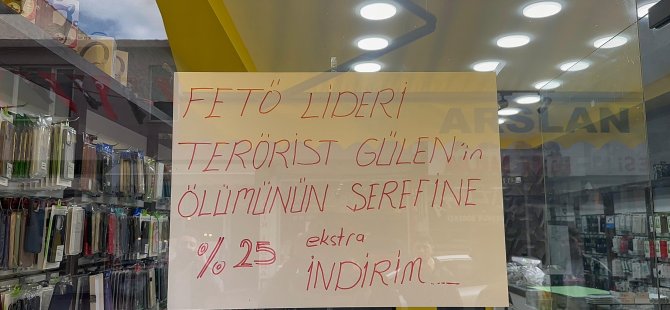 FETÖ LİDERİ
TERÖRİST GÜLEN'in
ÖLÜMÜNÜN ŞEREFİNE
% 25 ekstra İNDİRİM....
ARSLAN